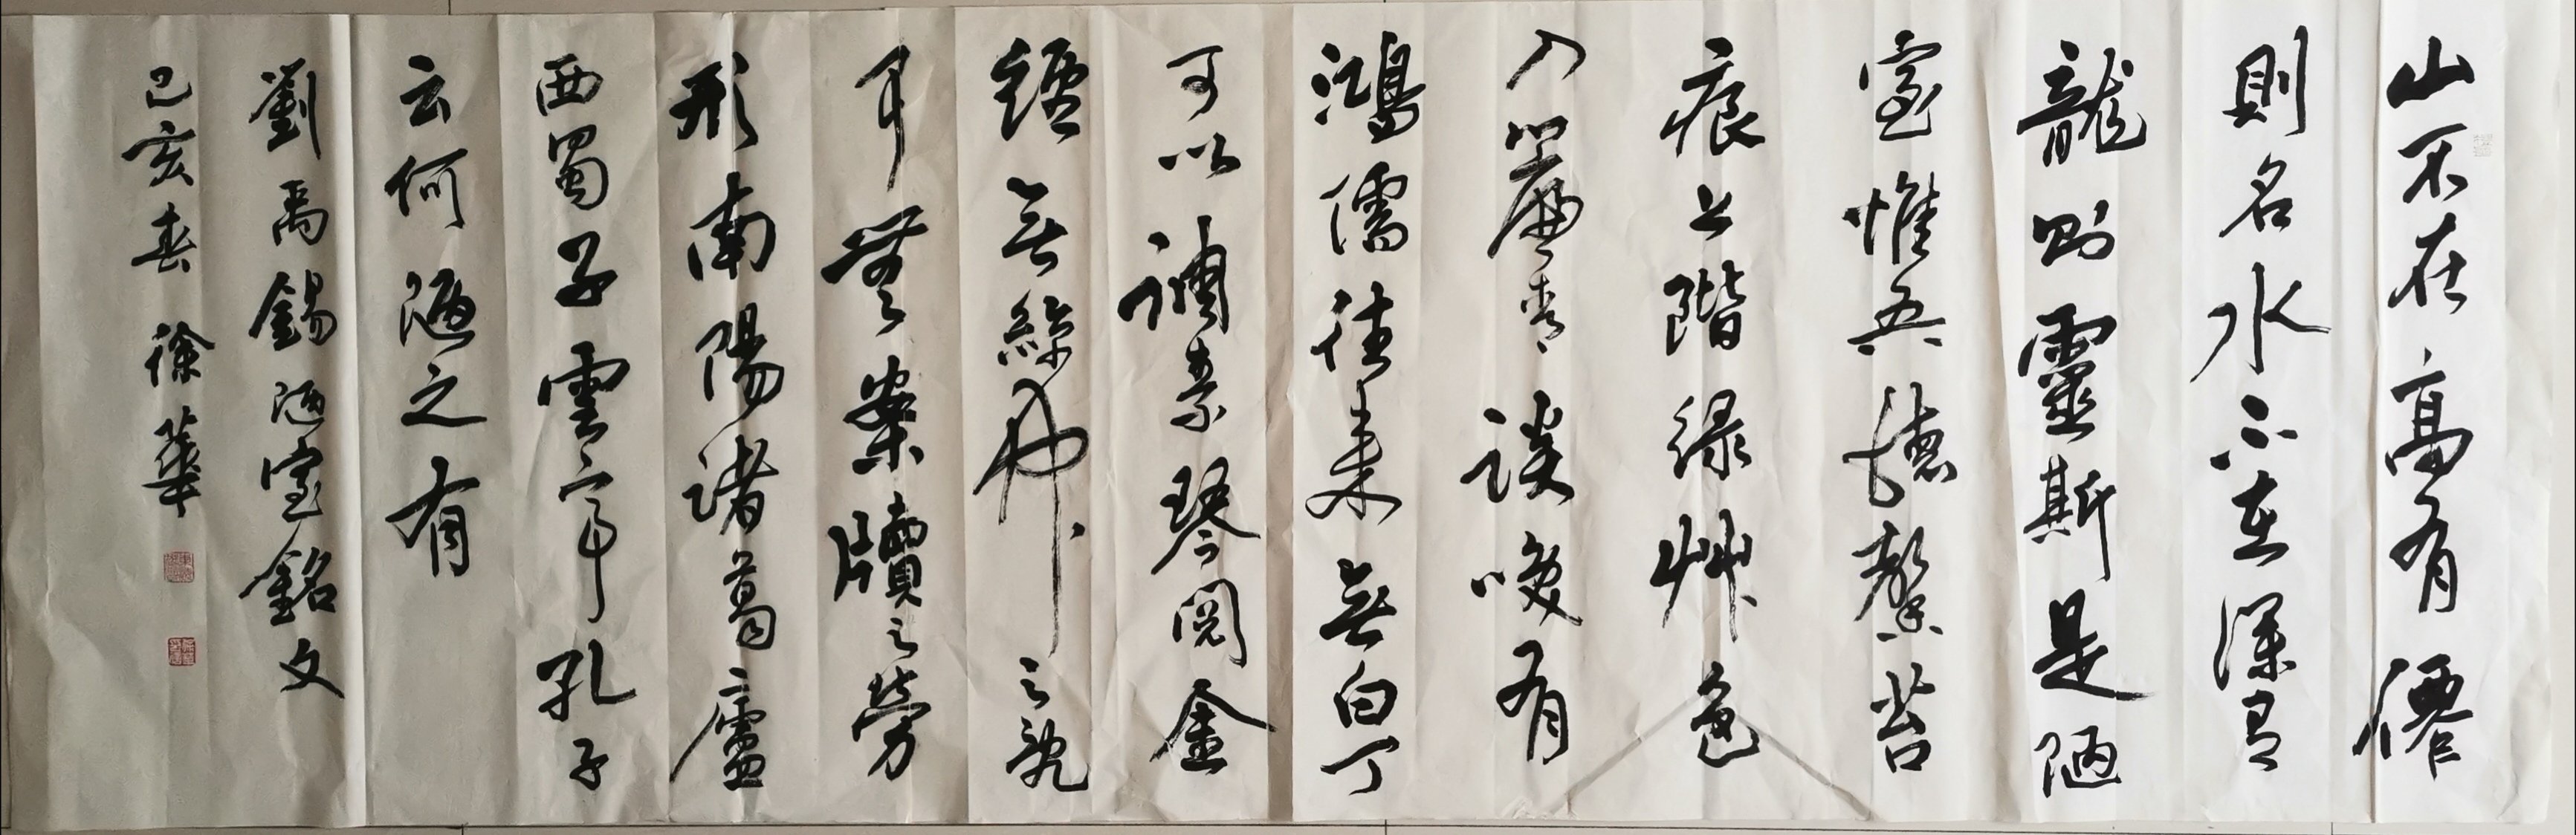 山不在高有僊
則名水不在深有
龍則靈斯是陋
室惟吾德馨苔
痕上階綠艸色
入簾青談咲有
鴻儒往来無白丁
可以調素琴閱金
經無絲竹之亂
耳無案牘之勞
形南陽諸葛廬
西蜀子雲亭孔子
云何陋之有
劉禹錫陋室銘文
己亥春 徐華